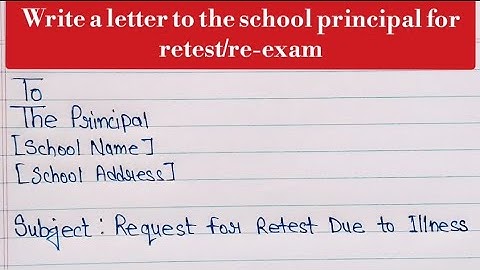 Write a letter to the school principal for
retest/re-exam
To
The Principal
[School Name]
[School Address]
Subject : Request for Retest Due to Illness